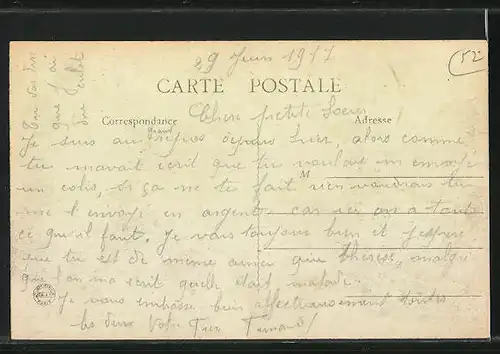 29 Juin 1917
52
CARTE POSTALE
Chère petite Soeur!
Correspondance
Adresse
grand
Je suis au repos depuis hier, alors comme
tu mavait écrit que tu voulais m envoyé
M
un colis, si ça ne te fait rien voudrais tu
me l'envoyé en argent car ici on a tout
ce qu'il faut. Je vais toujours bien et j'espère
que tu est de même ainsi que Thérèse, malgré
que l'on ma écrit quelle était malade.
Je vous embrasse bien affectueusement toutes
les deux Votre Frère
Tu vas bien
que j'ai
une